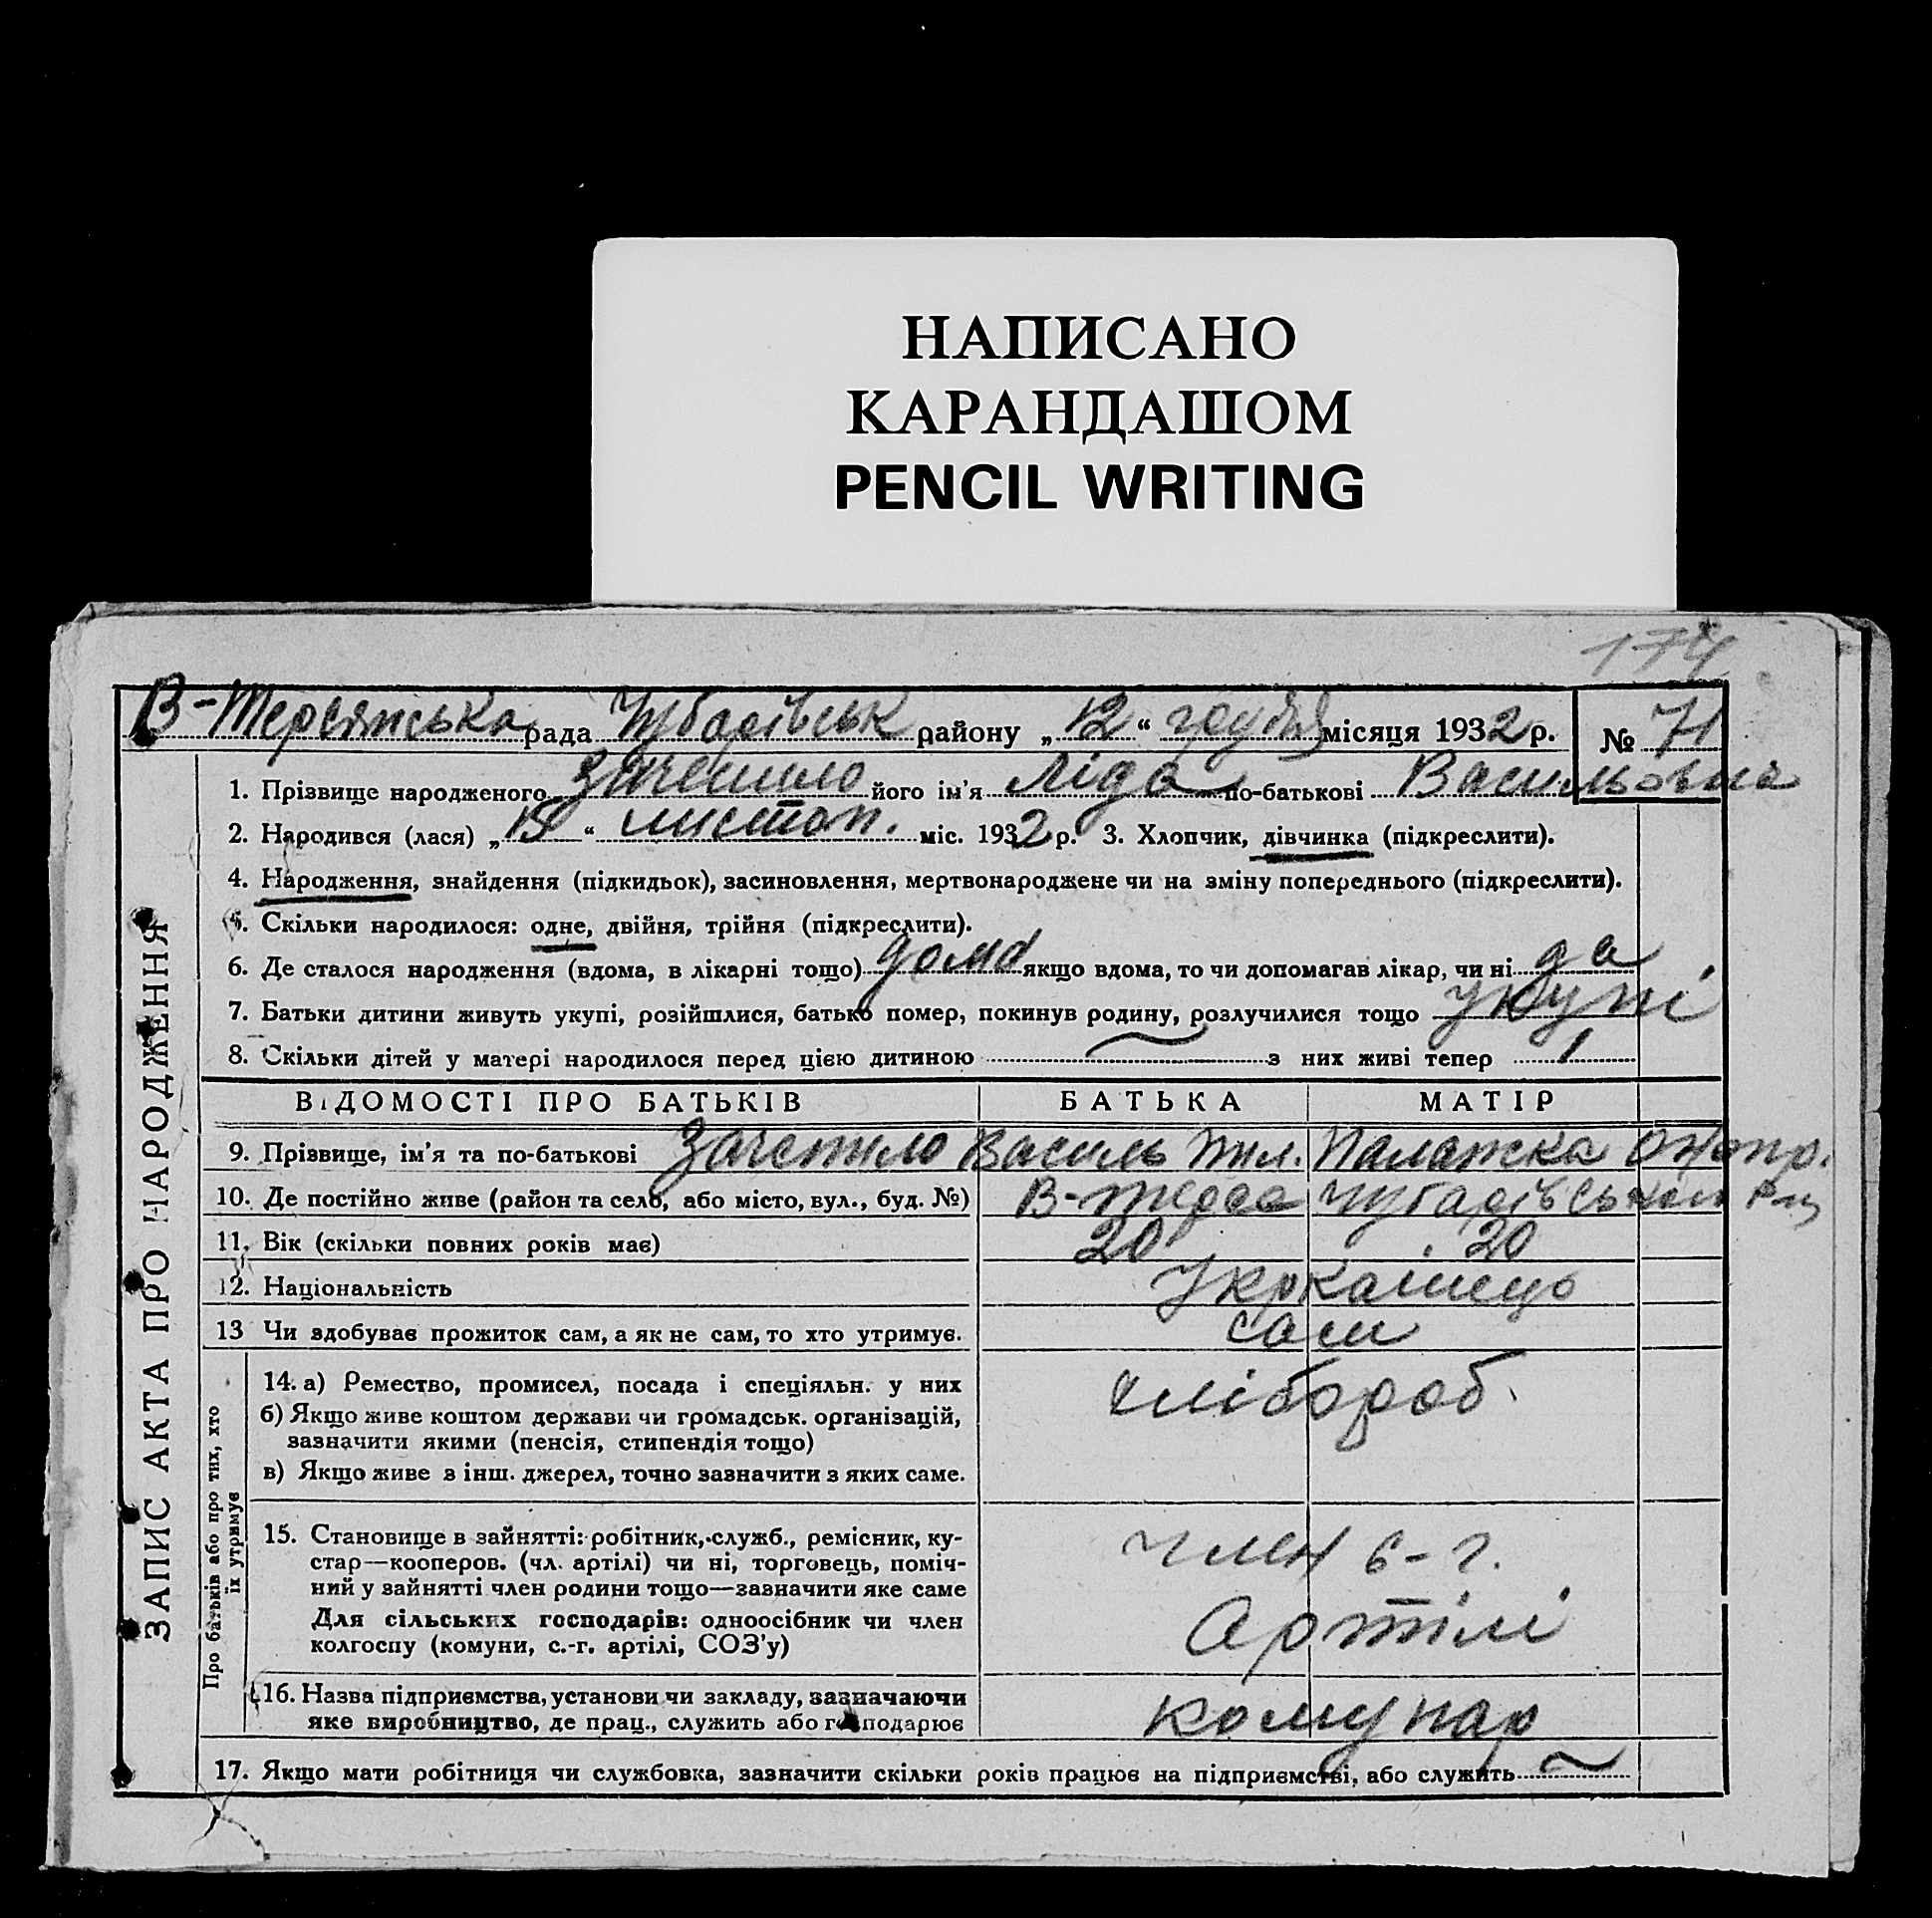 НАПИСАНО
КАРАНДАШОМ
PENCIL WRITING
174
В-Терсянська рада Чубарівськ району „12“ грудня місяця 1932 р. № 71
1. Прізвище народженого його ім'я Ліда по-батькові Васильовна
2. Народився (лася) „15“ листоп. міс. 1932 р. 3. Хлопчик, дівчинка (підкреслити).
4. Народження, знайдення (підкидьок), засиновлення, мертвонароджене чи на зміну попереднього (підкреслити).
5. Скільки народилося: одне, двійня, трійня (підкреслити).
6. Де сталося народження (вдома, в лікарні тощо) дома якщо вдома, то чи допомагав лікар, чи ні да
7. Батьки дитини живуть укупі, розійшлися, батько помер, покинув родину, розлучилися тощо укупі
8. Скільки дітей у матері народилося перед цією дитиною ~ з них живі тепер 1
ВІДОМОСТІ ПРО БАТЬКІВ БАТЬКА МАТІР
9. Прізвище, ім'я та по-батькові Василь Палажка
10. Де постійно живе (район та село, або місто, вул., буд. №) В-Терса Чубарівськом
11. Вік (скільки повних років має) 20 20
12. Національність Українець
13 Чи здобуває прожиток сам, а як не сам, то хто утримує. сам
14. а) Ремество, промисел, посада і спеціяльн. у них хлібороб.
б) Якщо живе коштом держави чи громадськ. організацій,
зазначити якими (пенсія, стипендія тощо)
в) Якщо живе з інш. джерел, точно зазначити з яких саме.
15. Становище в зайнятті: робітник, служб., ремісник, ку-
стар—кооперов. (чл. артілі) чи ні, торговець, поміч- член с-г.
ний у зайнятті член родини тощо—зазначити яке саме
Для сільських господарів: одноосібник чи член артілі
колгоспу (комуни, с.-г. артілі, СОЗ'у)
16. Назва підприємства, установи чи закладу, зазначаючи комунар
яке виробництво, де прац., служить або господарює
17. Якщо мати робітниця чи службовка, зазначити скільки років працює на підприємстві, або служить ~
ЗАПИС АКТА ПРО НАРОДЖЕННЯ
Про батьків або про тих, хто
їх утримує